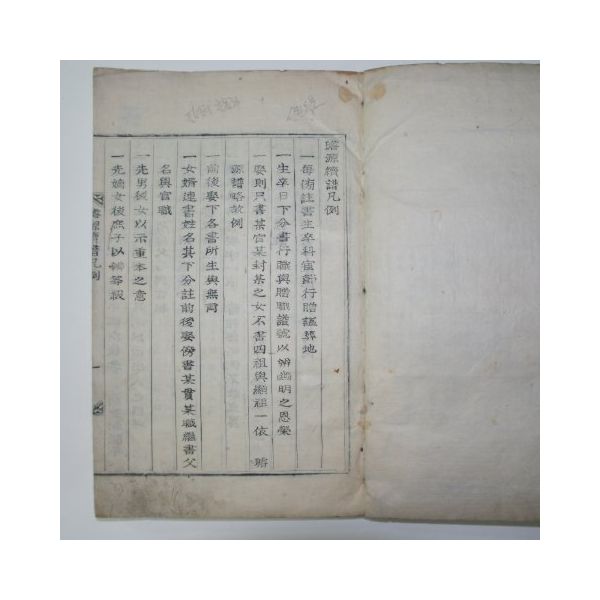 璿源續譜凡例
一每傍註書生卒科宦卹行贈謚葬地
一生卒日下分書行職與贈職諡號以辨幽明之恩榮
一娶則只書某官某封某之女不書四祖與顯祖一依 璿
源譜略故例
一前後娶下各書所生與無育
一女婿連書姓名其下分註前後娶傍書某貫某職繼書父
名與官職
一先男後女以示重本之意
一先嫡女後庶子以辨等級
璿源續譜凡例
一